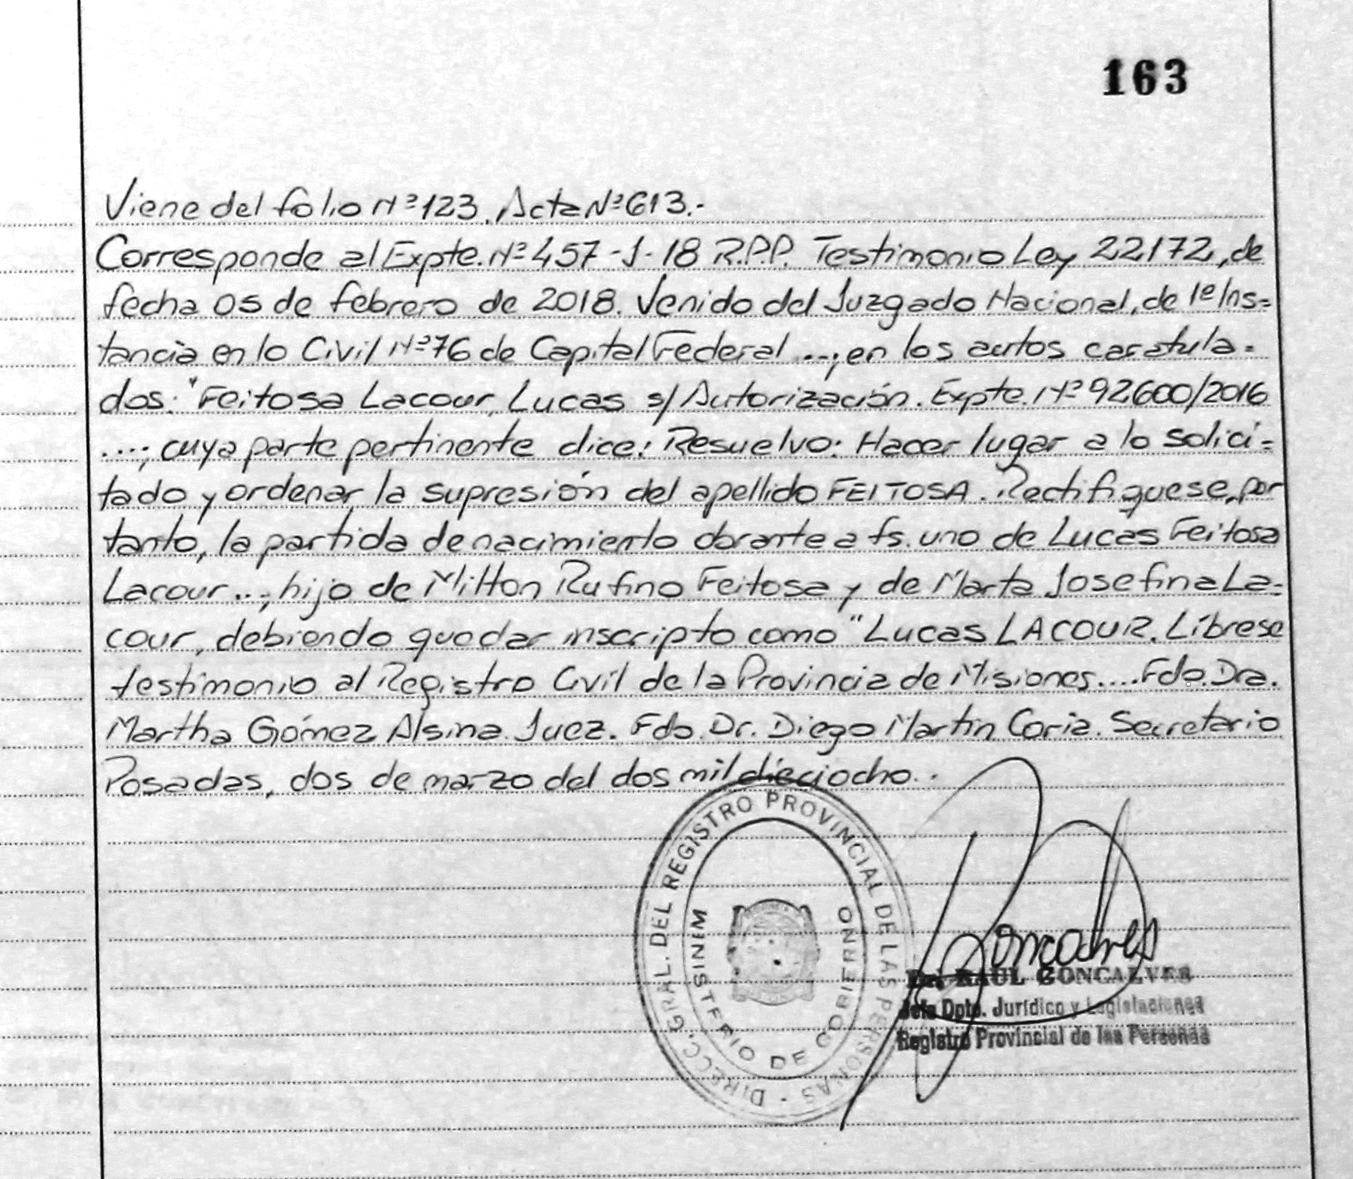 163
Viene del folio Nº 123, Acta Nº 613.-
Corresponde al Expte. Nº 457-J-18 R.P.P. Testimonio Ley 22172, de
fecha 05 de febrero de 2018. Venido del Juzgado Nacional, de 1º Ins=
tancia en lo Civil Nº 76 de Capital Federal ...; en los autos caratula=
dos: "Feitosa Lacour, Lucas s/ Autorización. Expte. Nº 92600/2016
...; cuya parte pertinente dice: Resuelvo: Hacer lugar a lo solici=
tado y ordenar la supresión del apellido FEITOSA. Rectifiquese, por
tanto, la partida de nacimiento obrante a fs. uno de Lucas Feitosa
Lacour...; hijo de Milton Rufino Feitosa y de Marta Josefina La=
cour, debiendo quedar inscripto como "Lucas LACOUR. Líbrese
testimonio al Registro Civil de la Provincia de Misiones.... Fdo. Dra.
Martha Gómez Alsina. Juez. Fdo. Dr. Diego Martin Coria. Secretario
Posadas, dos de marzo del dos mil dieciocho.-
DIRECC. GRAL. DEL REGISTRO PROVINCIAL DE LAS PERSONAS -
MINISTERIO DE GOBIERNO
Goncalves
RAUL GONCALVES
Jefe Dpto. Jurídico y Legislaciones
Registro Provincial de las Personas